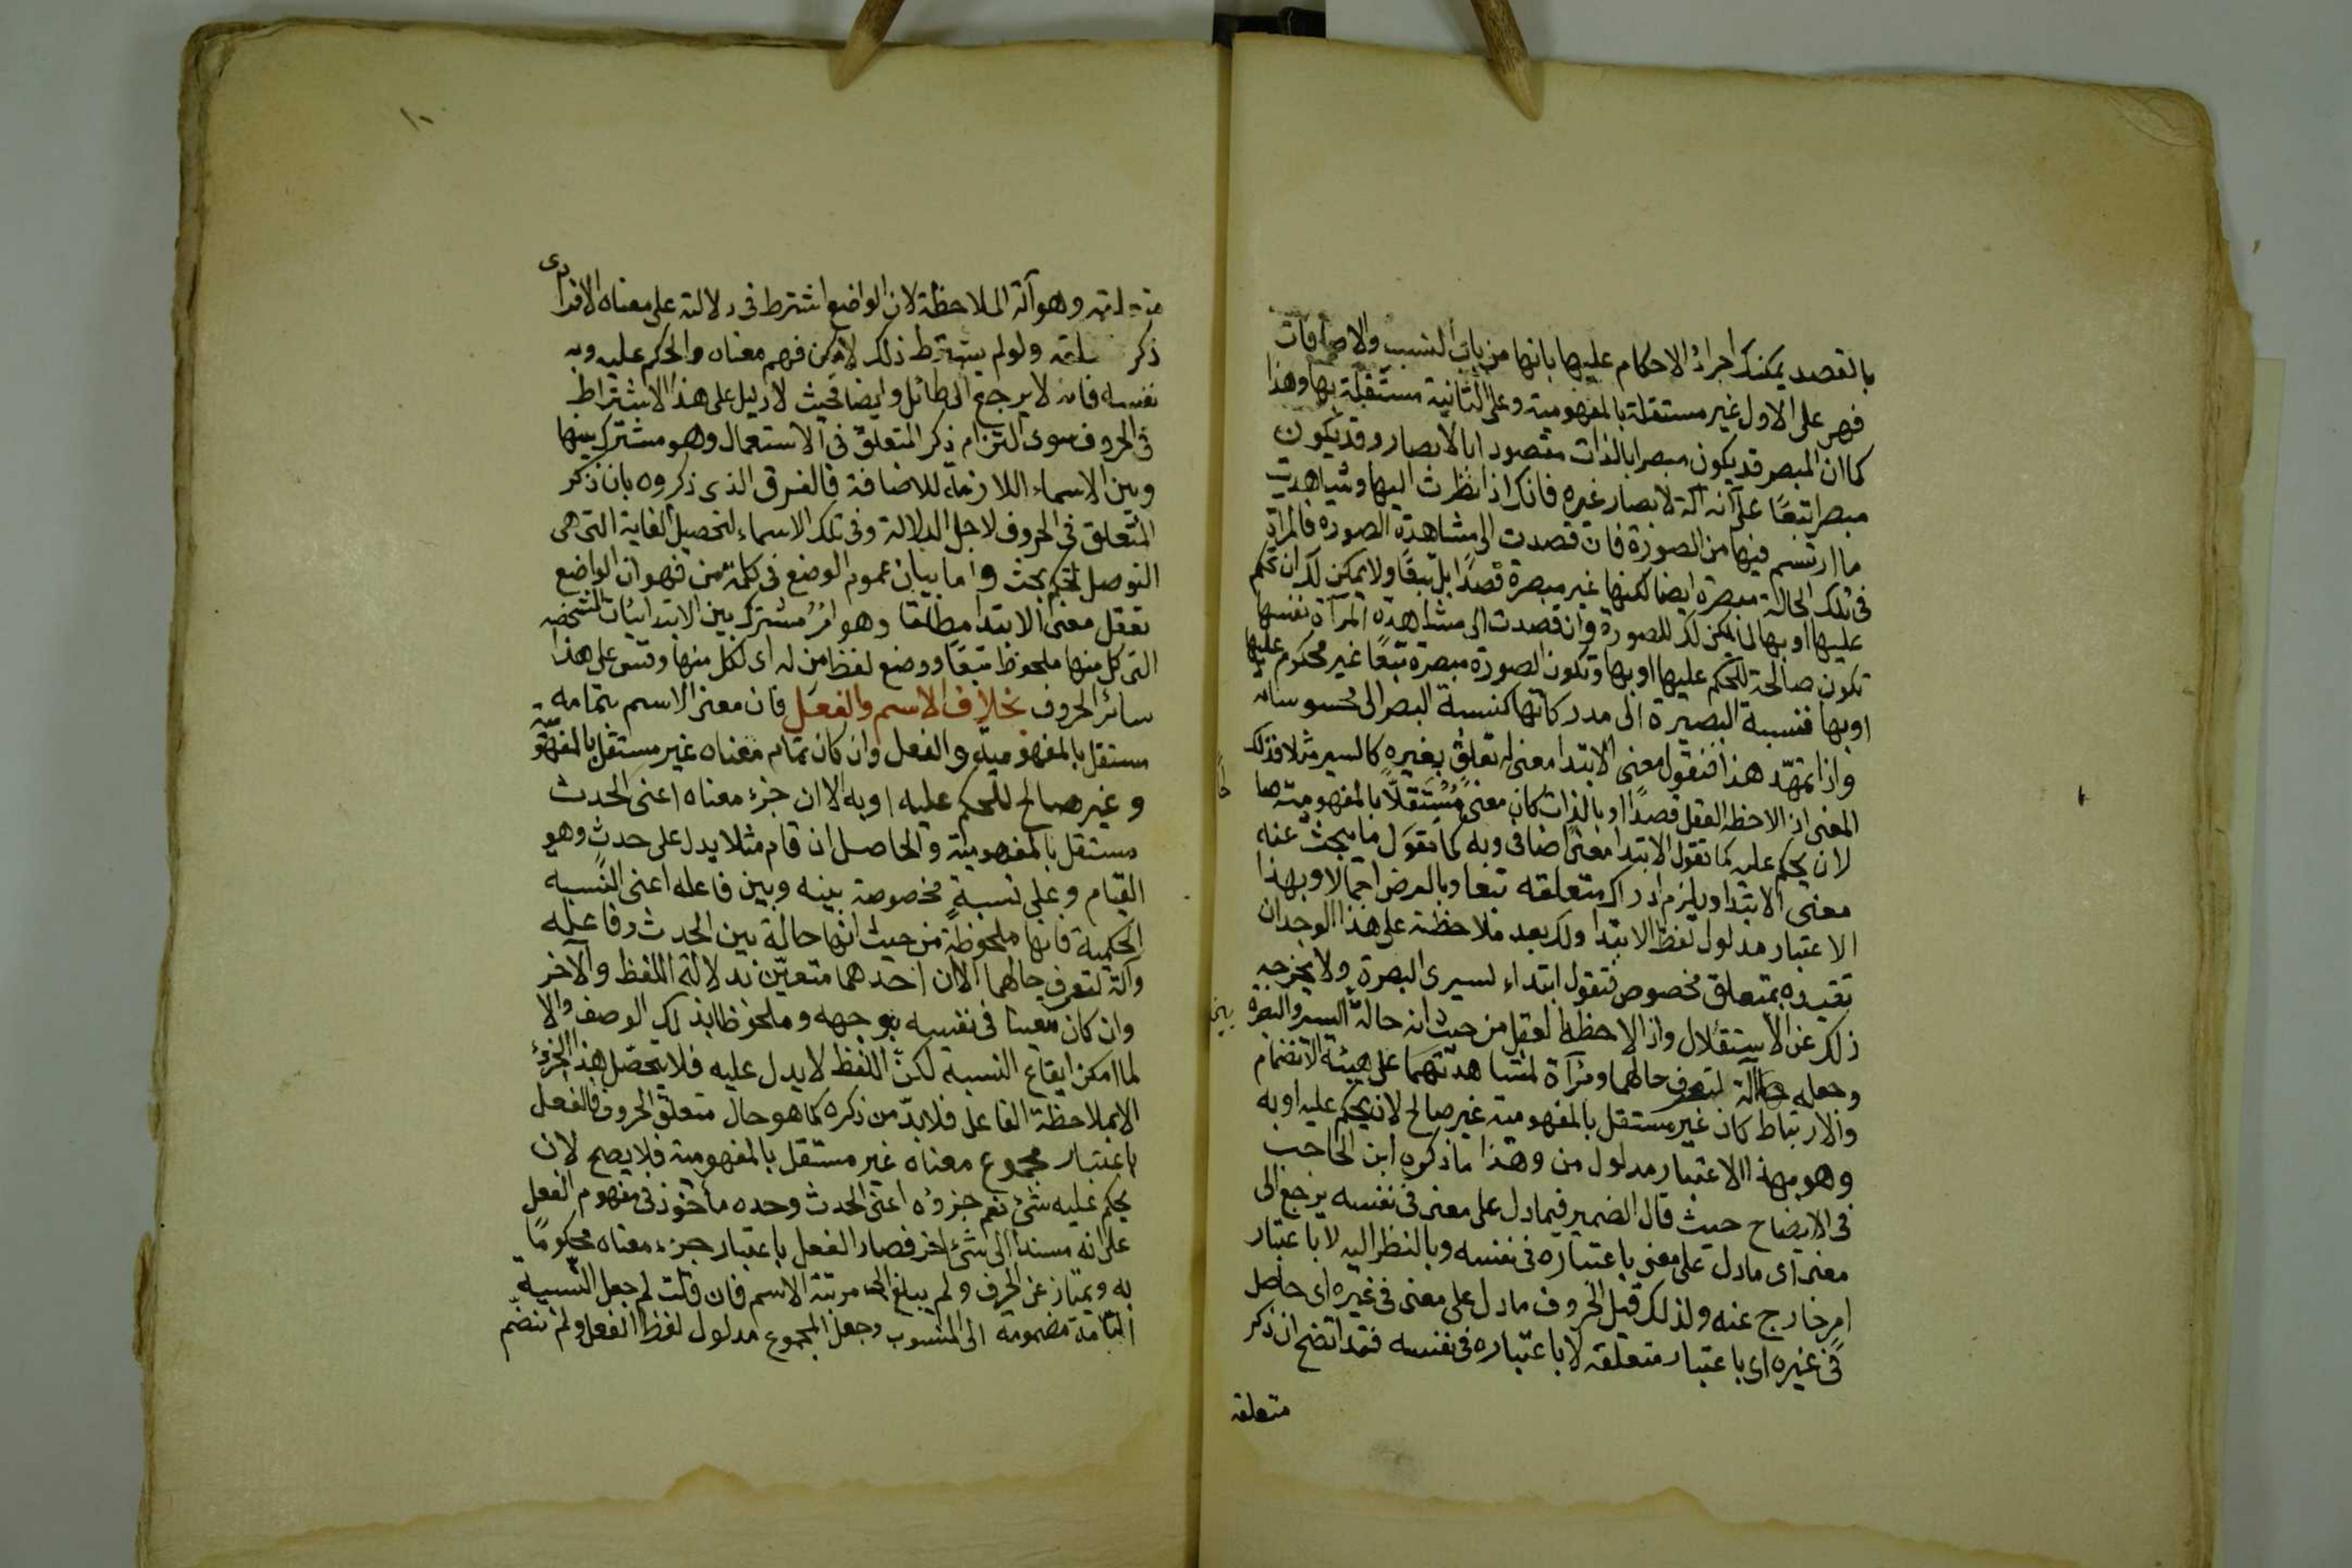 بالقصد يمكنك اجراء الاحكام عليها بانها من باب النسب والاضافات
فهى على الاول غير مستقلة بالمفهومية وعلى الثانية مستقلة بها وهذا
كما ان المبصر قد يكون مبصرا بالذات مقصودا بالابصار وقد يكون
مبصرا تبعًا على انه آلة لابصار غيره فانك اذا نظرت اليها وشاهدت
ما ارتسم فيها من الصورة فان قصدت الى مشاهدة الصورة فالمرآة
فى تلك الحالة مبصرة ايضا لكنها غير مبصرة قصدًا بل تبعًا ولا يمكن لك ان تحكم
عليها او بها كما يمكن لك للصورة وان قصدت الى مشاهدة المرآة نفسها
تكون صالحة للحكم عليها او بها وتكون الصورة مبصرة تبعًا غير محكوم عليها
او بها فنسبة البصيرة الى مدركاتها كنسبة البصر الى محسوساته
واذا تمهّد هذا فنقول معنى الابتدا معنى له تعلق بغيره كالسير مثلا فذلك
المعنى اذا لاحظه العقل قصدًا او بالذات كان معنىً مُستقلًّا بالمفهومية صا
لحًا
لان يحكم عليه كما تقول الابتدا معنى اضافى وبه كما تقول ما يبحث عنه
معنى الابتدا ويلزم ادراك متعلقه تبعا وبالعرض اجمالا وبهذا
الاعتبار مدلول لفظ الابتدا ولك بعد ملاحظة على هذا الوجه ان
تقيده بمتعلق مخصوص فتقول ابتداء لسيرى البصرة ولا يخرجه
ذلك عن الاستقلال واذا لاحظه العقل من حيث انه حالة بين السير والبصرة
وجعله آلة لتعرف حالهما ومرآة لمشاهدتهما على هيئة الانضمام
والارتباط كان غير مستقل بالمفهومية غير صالح لان يحكم عليه او به
وهو بهذا الاعتبار مدلول من وهذا ما ذكره ابن الحاجب
فى الايضاح حيث قال الضمير فيما دل على معنى فى نفسه يرجع الى
معنى اى ما دل على معنى باعتباره فى نفسه وبالنظر اليه لا باعتبار
امر خارج عنه ولذلك قيل الحروف ما دل على معنى فى غيره اى حاصل
فى غيره اى باعتبار متعلقه لا باعتباره فى نفسه فقد اتضح ان ذكر
متعلقه
١٠
متعلقه وهو آلة الملاحظة لان الواضع اشترط فى دلالته على معناه الافرادى
ذكر متعلقه ولو لم يشترط ذلك لامكن فهم معناه والحكم عليه وبه
نفسه فانه لا يرجع الى طائل وايضا فحيث لا دليل على هذا الاشتراط
فى الحروف سوى التزام ذكر المتعلق فى الاستعمال وهو مشترك بينها
وبين الاسماء اللازمة للاضافة فالفرق الذى ذكروه بان ذكر
المتعلق فى الحروف لاجل الدلالة وفى تلك الاسماء لتحصيل الغاية التى هى
التوصل تحكم بحث واما بيان عموم الوضع فى كلمة من فهو ان الواضع
تعقل معنى الابتدا مطلقا وهو امرُ مشترك بين الابتدائيات المشخصه
التى كل منها ملحوظ تبعًا ووضع لفظ من له اى لكل منها وقس على هذا
سائر الحروف بخلاف الاسم والفعل فان معنى الاسم بتمامه
مستقل بالمفهومية والفعل وان كان تمام معناه غير مستقل بالمفهومية
وغير صالح للحكم عليه او به الا ان جزء معناه اعنى الحدث
مستقل بالمفهومية والحاصل ان قام مثلا يدل على حدثٍ وهو
القيام وعلى نسبةٍ مخصوصة بينه وبين فاعله اعنى النسبه
الحكمية فانها ملحوظة من حيث انها حالة بين الحدث وفاعله
وآلة لتعرف حالهما الا ان احدهما متعيّن بدلالة اللفظ والآخر
وان كان معينا فى نفسه بوجهه وملحوظا بذلك الوصف والا
لما امكن ايقاع النسبة لكنّ اللفظ لا يدل عليه فلا يتحصّل هذا الجزءُ
الا بملاحظة الفاعل فلابدّ من ذكره كما هو حال متعلق الحروف فالفعل
باعتبار مجموع معناه غير مستقل بالمفهومية فلا يصح لان
يحكم عليه شئ نعم جزؤه اعنى الحدث وحده مأخوذ فى مفهوم الفعل
على انه مسند الى شئ آخر فصار الفعل باعتبار جزء معناه محكومًا
به ويمتاز عن الحرف ولم يبلغ الى مرتبة الاسم فان قلت لم جعل النسبة
التامة مضمومة الى المنسوب وجعل المجموع مدلول لفظ الفعل ولم تنضم